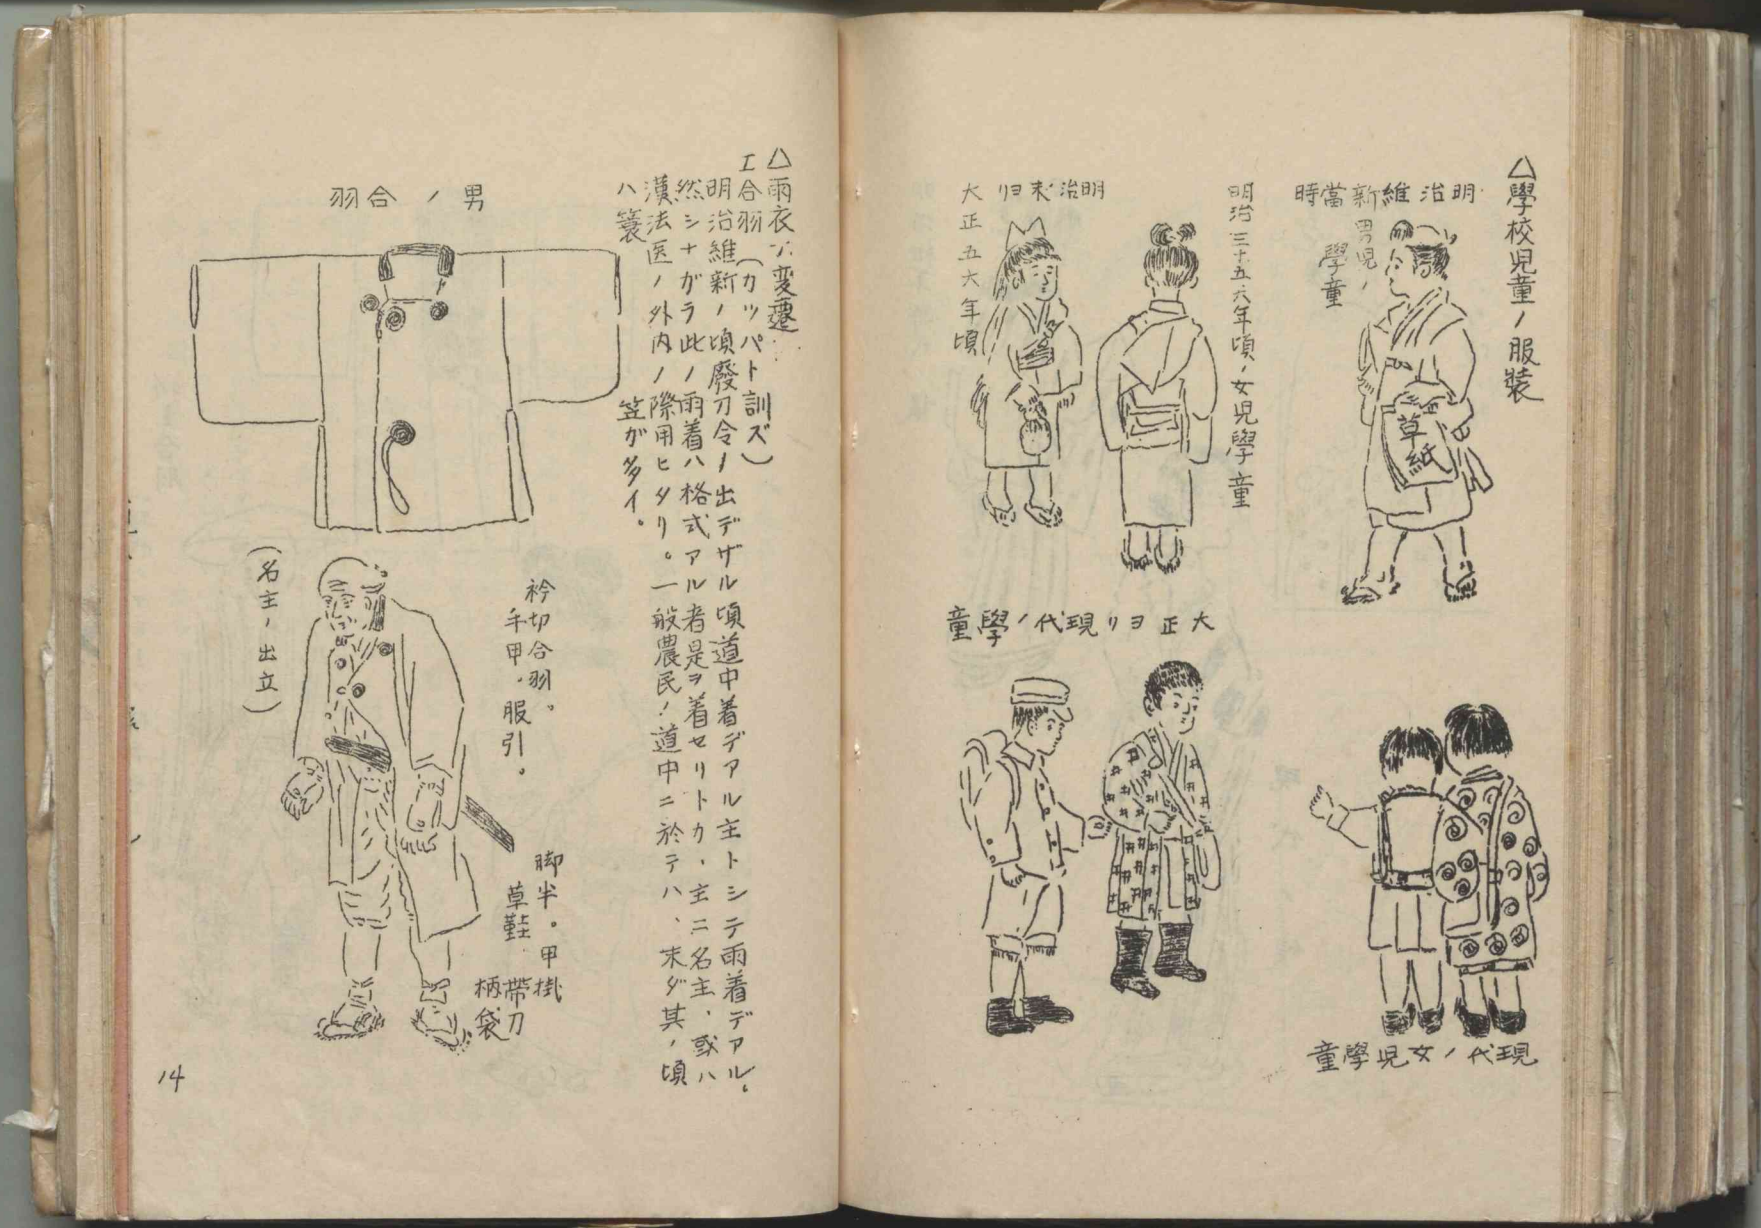 △學校児童ノ服装
明治維新當時
男児ノ
學童
草紙
明治三十五六年頃ノ女児學童
明治末ヨリ
大正五六年頃
大正ヨリ現代ノ學童
現代ノ女児學童
△雨衣ノ変遷
工合羽(カッパト訓ズ)
明治維新ノ頃廢刀令ノ出デザル頃道中着デアル主トシテ雨着デアル。
然シナガラ此ノ雨着ハ格式アル者是ヲ着セリトカ、主ニ名主、或ハ
漢法医ノ外内ノ際用ヒタリ。一般農民ノ道中ニ於テハ、末ダ其ノ頃
ハ簑笠が多イ。
男ノ合羽
衿切合羽。
手甲。服引。
脚半。甲掛
草鞋
帯刀
柄袋
(名主ノ出立)
14